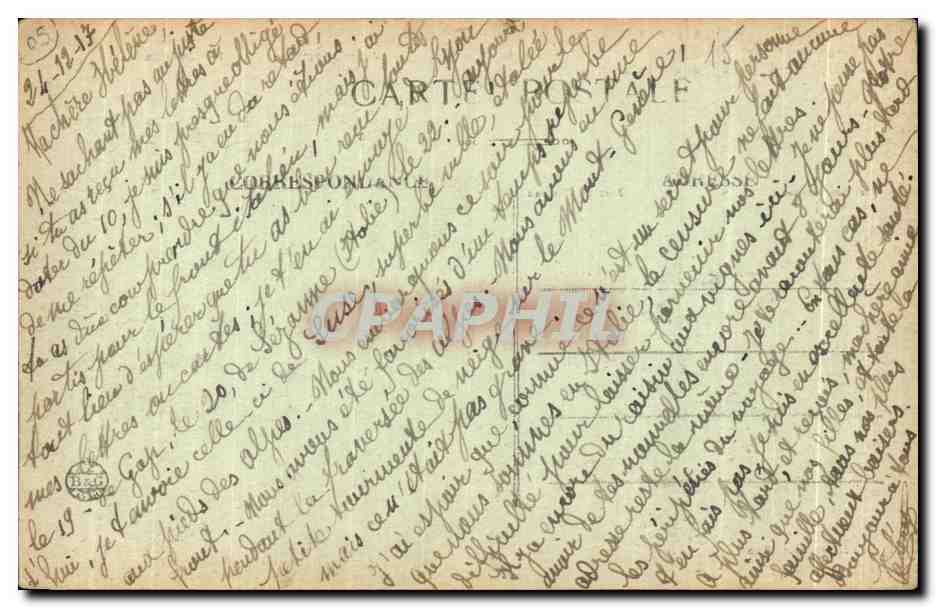 05
15
CARTE POSTALE
CORRESPONDANCE
ADRESSE
B&G
CPARAMA.com
24-12-17
Ma chère Hélène,
Ne sachant pas au juste
si tu as reçu mes lettres à
dater du 10, je suis presque obligé
de me répéter; s'il y a eu du retard,
tu as dû comprendre que nous étions
partis pour le front italien, mais j'ai
tout lieu d'espérer que tu as bien reçu tous
mes lettres ou cartes; je t'en ai envoyé de Lyon
le 19 - Gap, le 20, de Sézanne (Italie) le 22. Aujourd'
hui, je t'envoie celle-ci de Suse, superbe ville, étalée
aux pieds des Alpes. - Nous embarquons ce soir pour le
front. - Nous avons été favorisés d'un temps superbe
pendant la traversée des Alpes. Nous avons eu une
petite tourmente de neige sur le Mont-Genèvre
mais ce n'était pas grand chose.
J'ai espoir que, comme
que nous sommes en Italie, la censure ne fait aucune
difficulté pour laisser parvenir nos lettres.
Il y a encore du raisin aux vignes ici.
avoir de tes nouvelles encore avant 8 jours - Notre
adresse reste la même - je te raconterai plus tard
les péripéties du voyage. En tout cas, ne
t'en fais pas, je suis en excellente santé.
A plus tard, et reçois, ma chère amie
ainsi que nos filles et toute la
famille, mes plus
affectueux baisers.